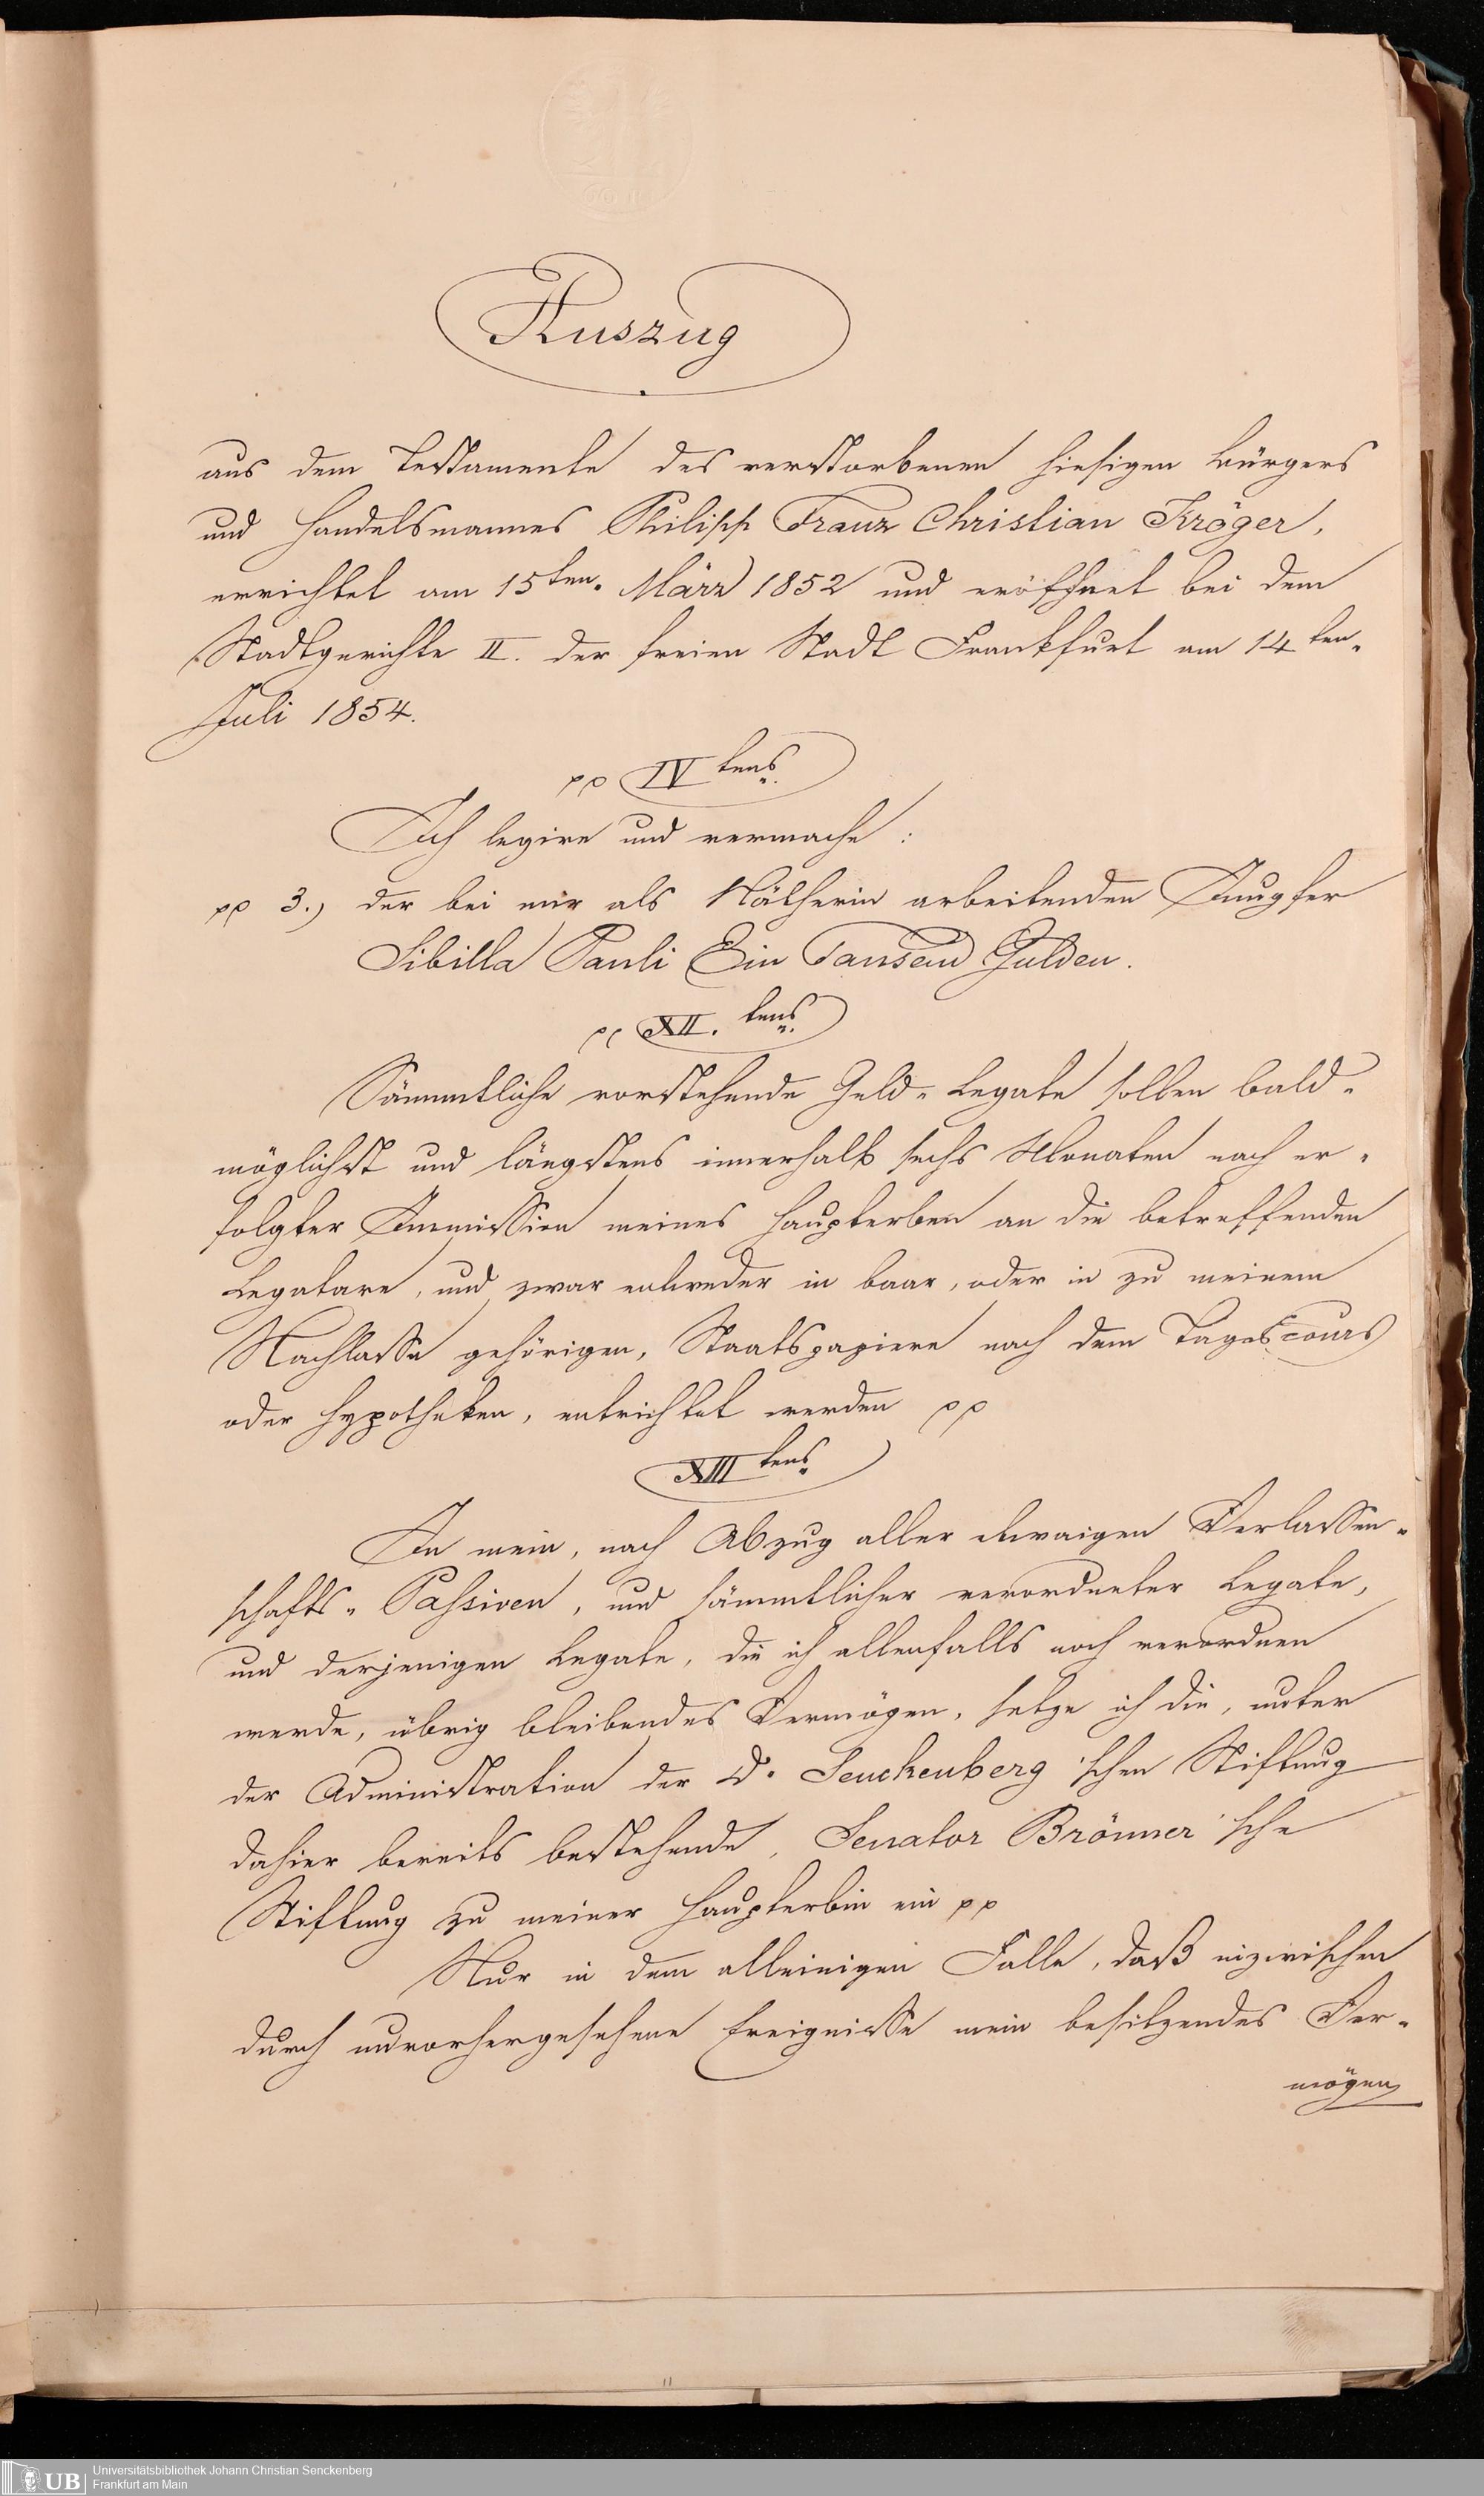 Auszug
aus dem Testamente des verstorbenen hiesigen Bürgers
und Handelsmannes Philipp Franz Christian Kröger,
errichtet am 15ten März 1852 und eröffnet bei dem
Stadtgerichte II. der freien Stadt Frankfurt am 14ten
Juli 1854.
pp IVtens
Ich legire und vermache :
pp 3.) der bei mir als Nätherin arbeitenden Jungfer
Sibilla Pauli Ein Tausend Gulden.
pp XII. tens
Sämmtliche vorstehende Geld-Legate sollen bald-
möglichst und längstens innerhalb sechs Monaten nach er-
folgter Immission meines Haupterben an die betreffenden
Legatare, und zwar entweder in baar, oder in zu meinem
Nachlasse gehörigen, Staatspapiere nach dem Tagescours
oder Hypotheken, entrichtet werden pp
XIIItens
In mein, nach Abzug aller etwaigen Verlassen-
schafts-Passiven, und sämmtlicher verordneter Legate,
und derjenigen Legate, die ich allenfalls noch verordnen
werde, übrig bleibendes Vermögen, setze ich die, unter
der Administration der Dr. Senckenberg'schen Stiftung
dahier bereits bestehende, Senator Brönner'sche
Stiftung zu meiner Haupterbin ein pp
Nur in dem alleinigen Falle, daß inzwischen
durch unvorhergesehene Ereignisse mein besitzendes Ver-
mögen
UB
Universitätsbibliothek Johann Christian Senckenberg
Frankfurt am Main